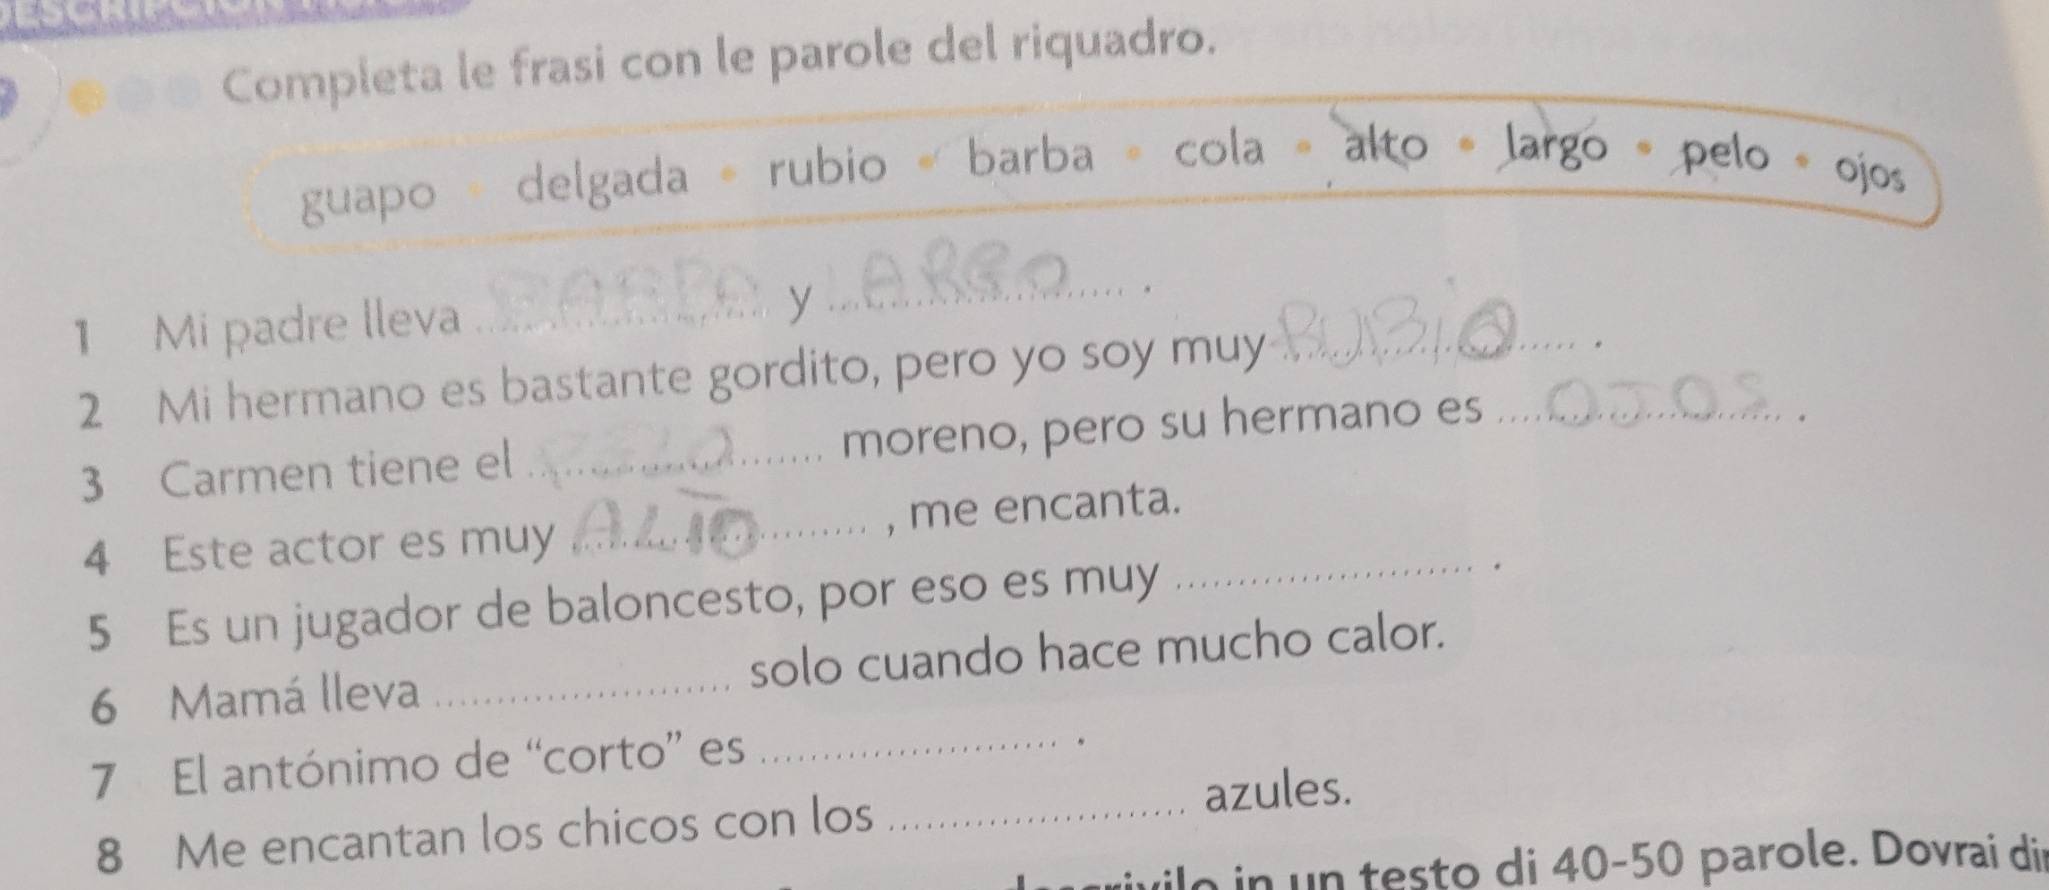 Completa le frasi con le parole del riquadro.
guapo • delgada • rubio • barba • cola • alto • largo • pelo • ojos
1 Mi padre lleva BARBA y LARGO.
2 Mi hermano es bastante gordito, pero yo soy muy RUBIO.
3 Carmen tiene el PELO moreno, pero su hermano es OJOS.
4 Este actor es muy ALTO, me encanta.
5 Es un jugador de baloncesto, por eso es muy .
6 Mamá lleva solo cuando hace mucho calor.
7 El antónimo de “corto” es .
8 Me encantan los chicos con los azules.
in un testo di 40-50 parole. Dovrai